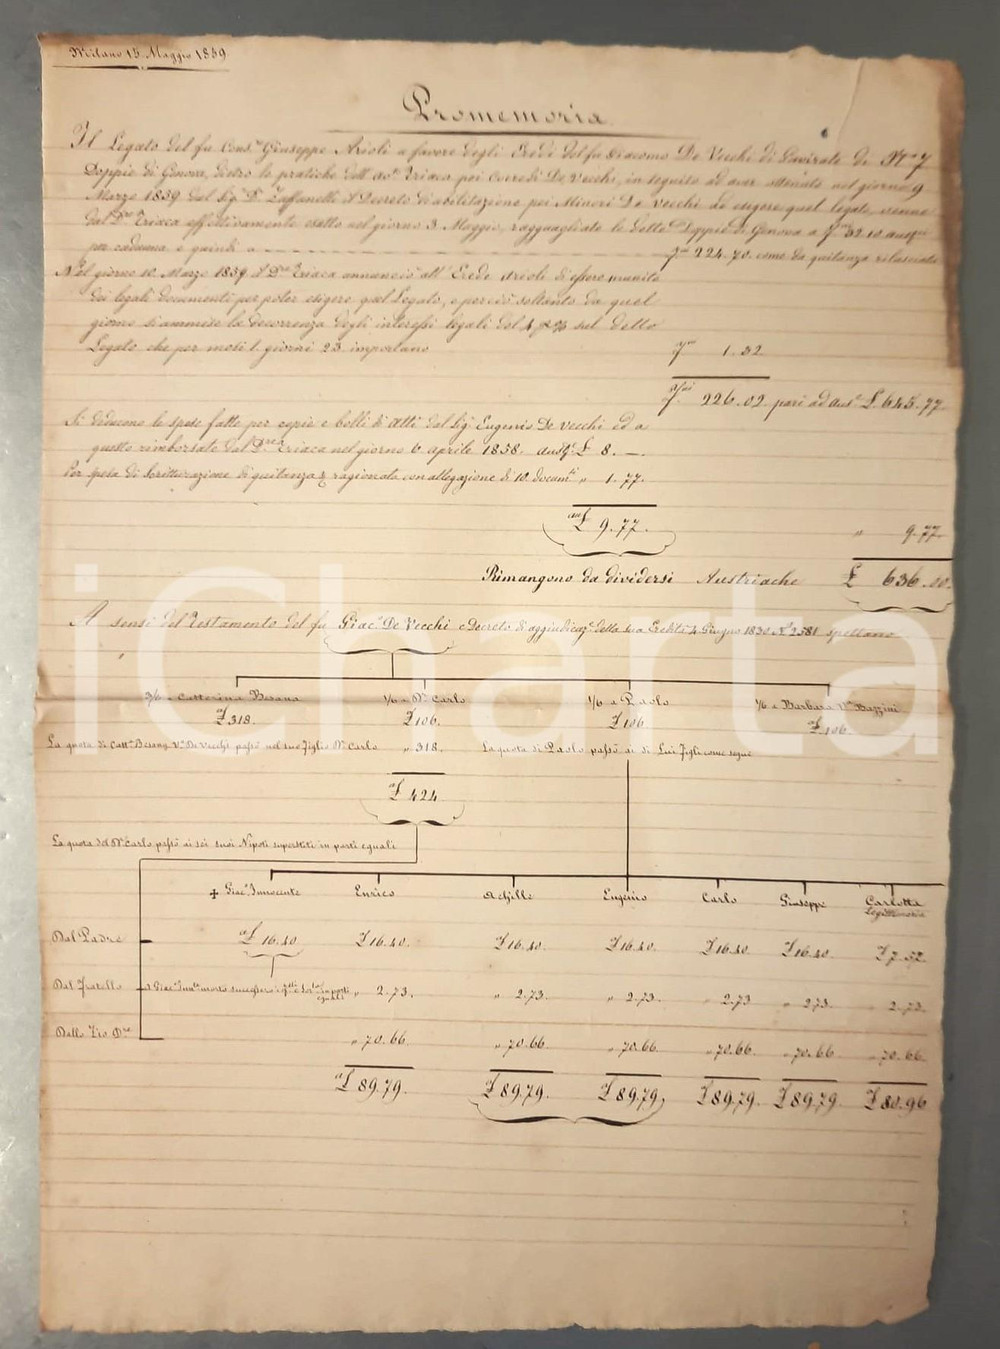 Milano 15 Maggio 1839
Promemoria
Il Legato del fu Cons.e Giuseppe Arioli a favore degli Eredi del fu Giacomo De Vecchi di Gavirate di N.o 7
Doppie di Genova, dietro le pratiche dell' Eriaca pei Coeredi De Vecchi, in seguito ad aver ottenuto nel giorno 9
Marzo 1839 dal Sig. D.r Zaffanelli il Decreto di abilitazione pei Minori De Vecchi ad esigere quel legato, venne
dal D.re Eriaca effettivamente esatto nel giorno 3 Maggio, ragguagliate le dette Doppie di Genova a 32.10
per caduna e quindi a 224.70. come da quitanza rilasciata
Nel giorno 10 Marzo 1839 il D.re Eriaca annunciò all' Erede Arioli di essere munito
dei legali documenti per poter esigere quel Legato, e perciò soltanto da quel
giorno si ammise la decorrenza degli interessi legali del 4 p% sul detto
Legato che per mesi 1. giorni 23 importano 1.32
226.02. pari ad aus.e £ 645.77
Si deducono le spese fatte per copie e bolli di Atti dal Sig. Eugenio De Vecchi ed a
questo rimborsate dal D.re Eriaca nel giorno 6 aprile 1838. £ 8. —.
Per spesa di Scritturazione di quitanza e ragionato con allegazione di 10. docum.ti " 1.77.
£ 9.77. " 9.77
Rimangono da dividersi Austriache £ 636.00.
A sensi del Testamento del fu Giac.o De Vecchi e Decreto di aggiudicaz.e della sua Eredità 4 Giugno 1830 N.o 2581 spettano
3/6 a Catterina Besana 1/6 a D.n Carlo 1/6 a Paolo 1/6 a Barbara V.a Bazzini
£ 318. £ 106. £ 106 £ 106
La quota di Catt.a Besana V.a De Vecchi passò nel suo Figlio D.n Carlo " 318. La quota di Paolo passò ai di Lui Figli come segue
£ 424
La quota del D.n Carlo passò ai sei suoi Nipoti superstiti in parti eguali
+ Giac.o Innocente Enrico Achille Eugenio Carlo Giuseppe Carlotta
Legittimaria
Dal Padre £ 16.40 £ 16.40. £ 16.40. £ 16.40. £ 16.40. £ 16.40 £ 7.52
Dal Fratello Giac.o Inn.te morto eguali " 2.73. " 2.73. " 2.73. " 2.73 " 2.73. " 2.73.
Dallo Zio D.n " 70.66 " 70.66 " 70.66. " 70.66. " 70.66 " 70.66
£ 89.79. £ 89.79. £ 89.79. £ 89.79. £ 89.79. £ 80.96
iCharta